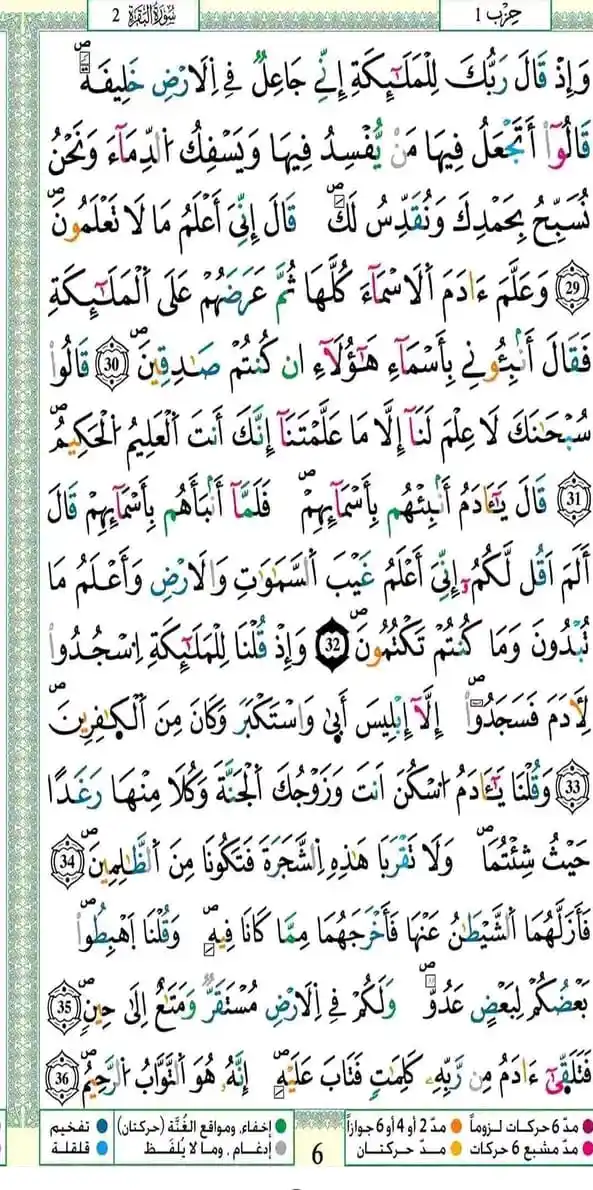 حِزْب 1
سُورَةُ البَقَرَة 2
وَإِذْ قَالَ رَبُّكَ لِلْمَلَٰٓئِكَةِ إِنِّے جَاعِلٞ فِے اِلَارْضِ خَلِيفَةٗۖ
قَالُوٓاْ أَتَجْعَلُ فِيهَا مَنْ يُّفْسِدُ فِيهَا وَيَسْفِكُ اُلدِّمَآءَ وَنَحْنُ
نُسَبِّحُ بِحَمْدِكَ وَنُقَدِّسُ لَكَۖ قَالَ إِنِّيَ أَعْلَمُ مَا لَا تَعْلَمُونَۖ
29 وَعَلَّمَ ءَادَمَ اَلَاسْمَآءَ كُلَّهَا ثُمَّ عَرَضَهُمْ عَلَى اَلْمَلَٰٓئِكَةِ
فَقَالَ أَنۢبِـُٔونِے بِأَسْمَآءِ هَٰٓؤُلَآءِ ان كُنتُمْ صَٰدِقِينَۖ 30 قَالُواْ
سُبْحَٰنَكَ لَا عِلْمَ لَنَآ إِلَّا مَا عَلَّمْتَنَآ إِنَّكَ أَنتَ اَلْعَلِيمُ اُلْحَكِيمُۖ
31 قَالَ يَٰٓـَٔادَمُ أَنۢبِئْهُم بِأَسْمَآئِهِمْۖ فَلَمَّآ أَنۢبَأَهُم بِأَسْمَآئِهِمْ قَالَ
أَلَمَ اَقُل لَّكُمُۥٓ إِنِّيَ أَعْلَمُ غَيْبَ اَلسَّمَٰوَٰتِ وَالَارْضِ وَأَعْلَمُ مَا
تُبْدُونَ وَمَا كُنتُمْ تَكْتُمُونَۖ 32 وَإِذْ قُلْنَا لِلْمَلَٰٓئِكَةِ اِسْجُدُواْ
لِأٓدَمَ فَسَجَدُوٓاْۖ إِلَّآ إِبْلِيسَ أَب۪يٰ وَاسْتَكْبَرَ وَكَانَ مِنَ اَلْكٰ۪فِرِينَۖ
33 وَقُلْنَا يَٰٓـَٔادَمُ اُسْكُنَ اَنتَ وَزَوْجُكَ اَلْجَنَّةَ وَكُلَا مِنْهَا رَغَداً
حَيْثُ شِئْتُمَاۖ وَلَا تَقْرَبَا هَٰذِهِ اِلشَّجَرَةَ فَتَكُونَا مِنَ اَلظَّٰلِمِينَۖ 34
فَأَزَلَّهُمَا اَلشَّيْطَٰنُ عَنْهَا فَأَخْرَجَهُمَا مِمَّا كَانَا فِيهِۖ وَقُلْنَا اَهْبِطُواْ
بَعْضُكُمْ لِبَعْضٍ عَدُوّٞۖ وَلَكُمْ فِے اِلَارْضِ مُسْتَقَرّٞ وَمَتَٰعٌ إِلَىٰ حِينٖۖ 35
فَتَلَقّ۪ىٰٓ ءَادَمُ مِن رَّبِّهِۦ كَلِمَٰتٖ فَتَابَ عَلَيْهِۖ إِنَّهُۥ هُوَ اَلتَّوَّابُ اُلرَّحِيمُۖ 36
مدّ 6 حركات لـزوماً مدّ 2 أو 4 أو 6 جوازاً إخفاء، ومواقع الغُنَّة (حركتان) تفخيم
مدّ مشبع 6 حركات مدّ حركتان 6 إدغام ، وما لا يُلفَظ قلقلة